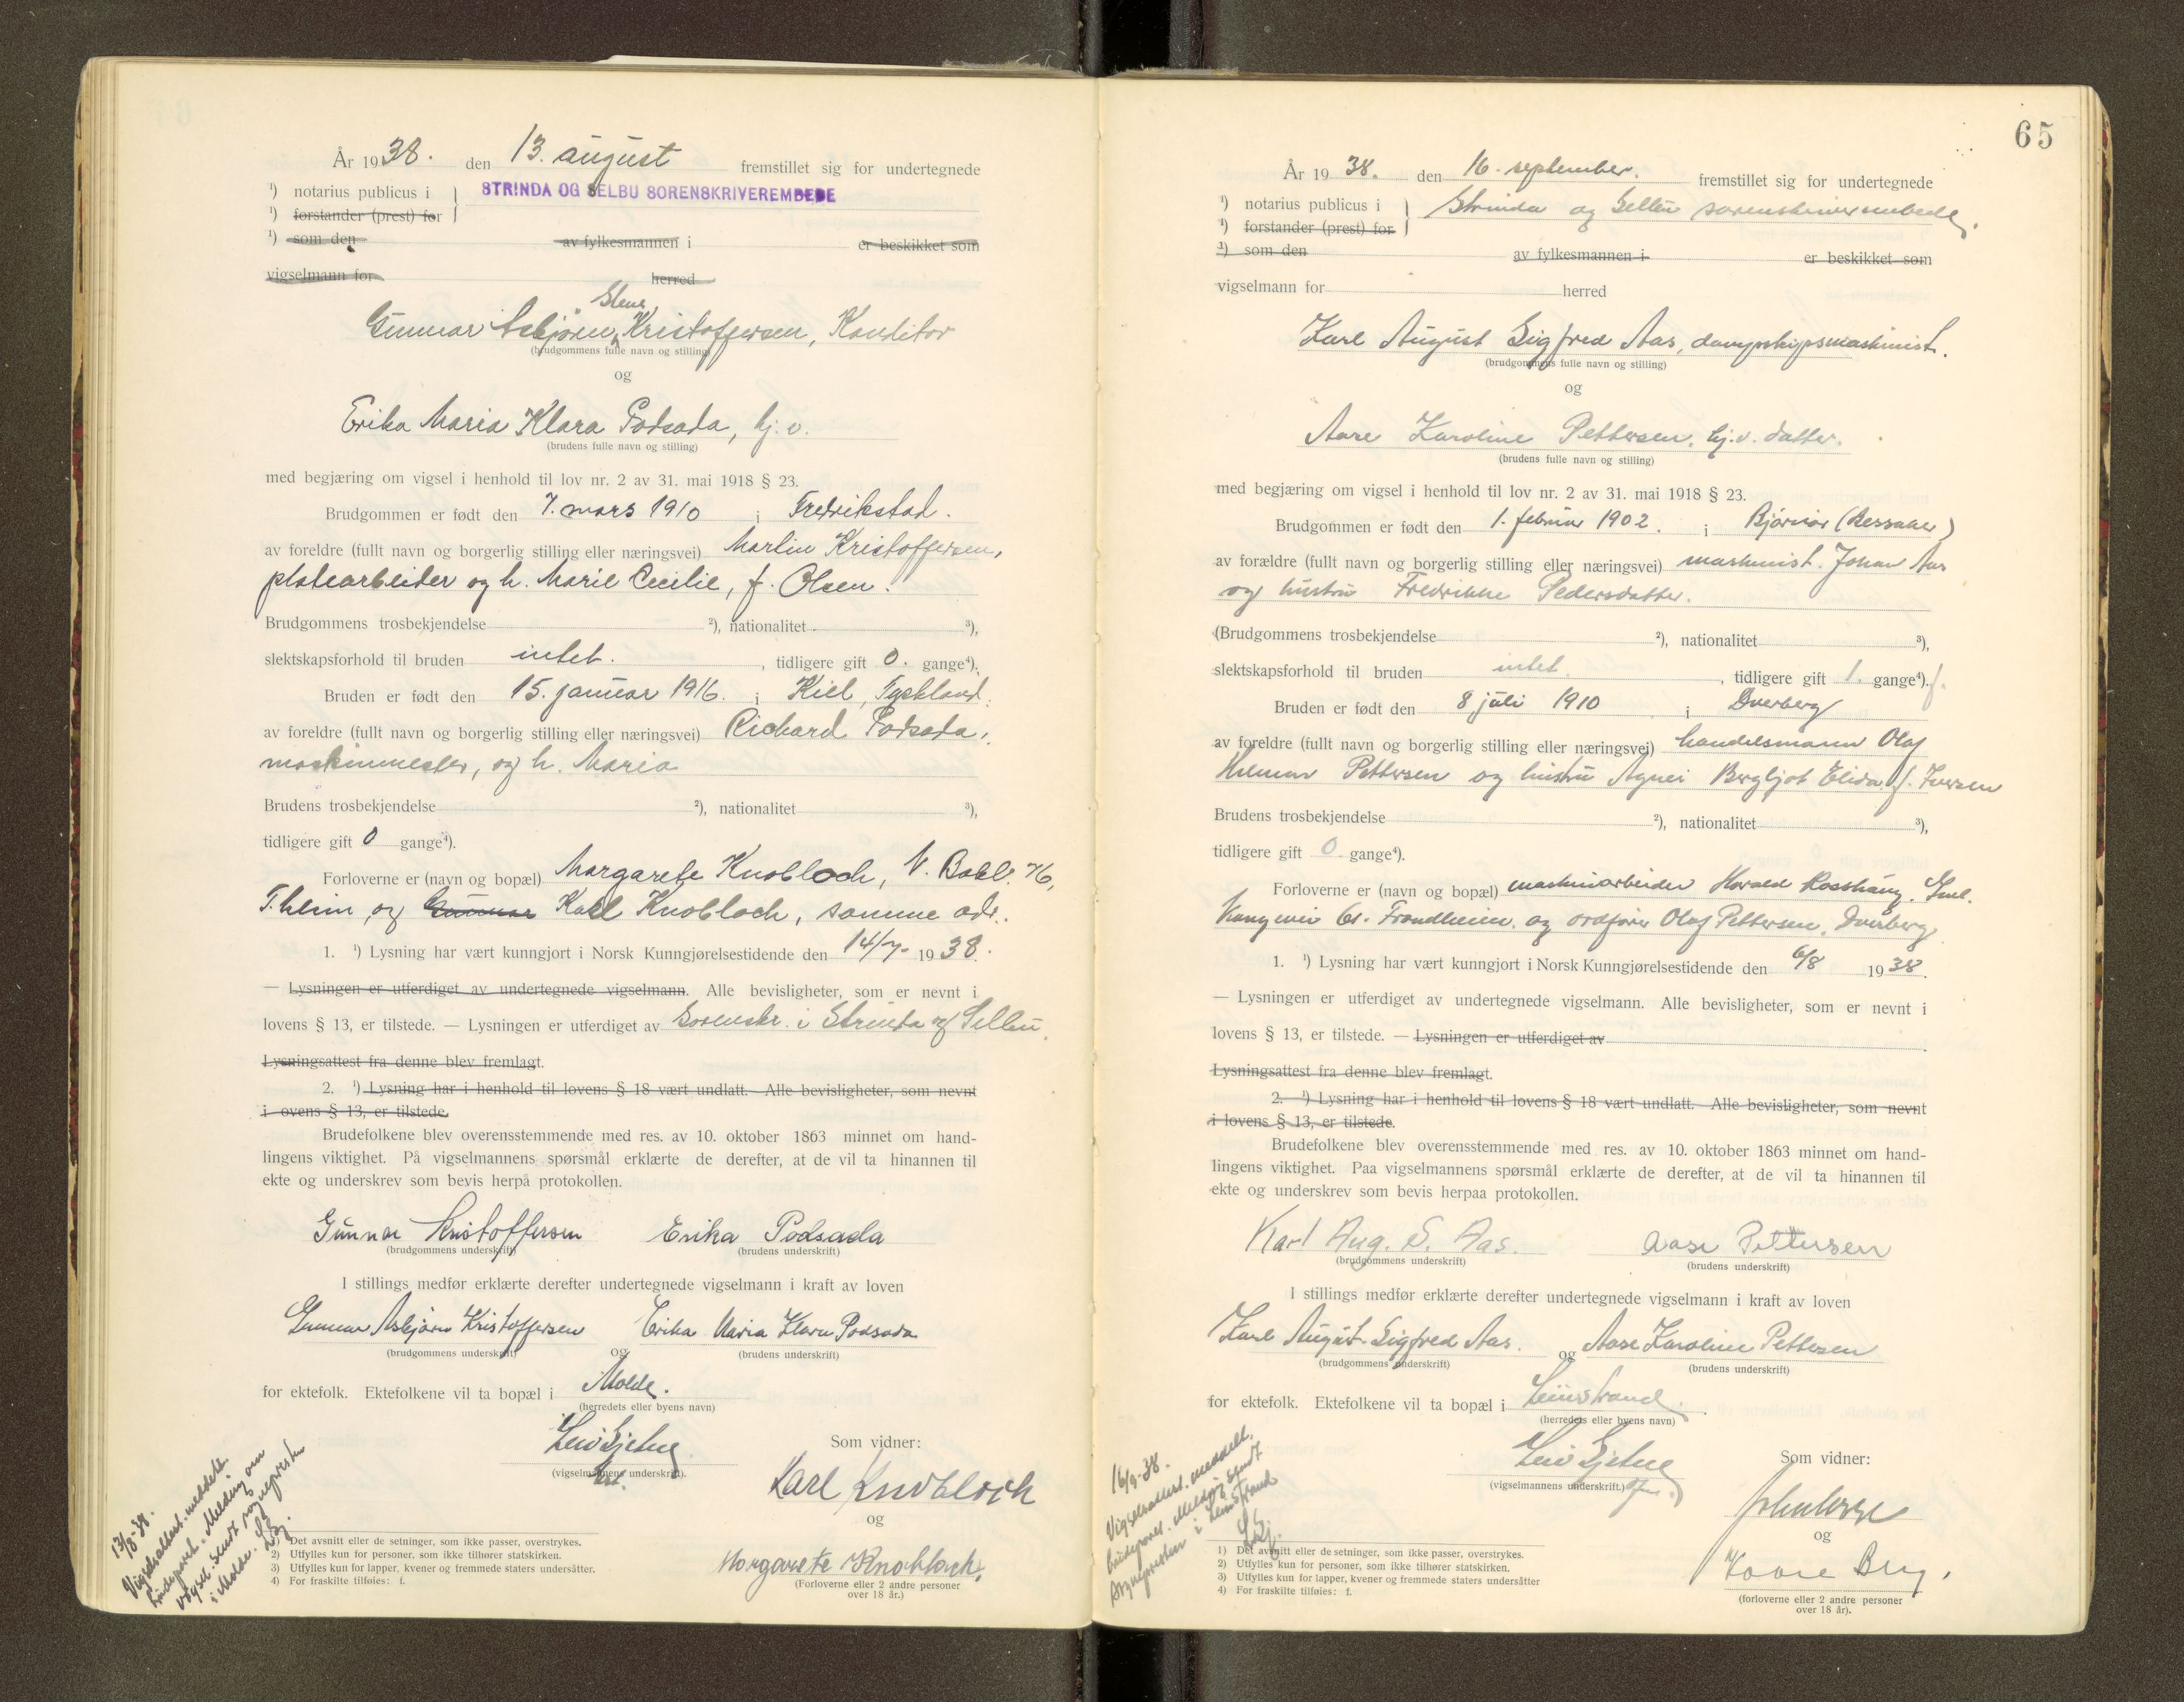 År 1938. den 13. august fremstillet sig for undertegnede
¹) notarius publicus i } STRINDA OG SELBU SORENSKRIVEREMBEDE
¹) forstander (prest) for
¹) som den av fylkesmannen i er beskikket som
vigselmann for herred
Gunnar Asbjørn Kristoffersen, Konditor
(brudgommens fulle navn og stilling)
og
Erika Maria Klara Podsada, hj. v.
(brudens fulle navn og stilling)
med begjæring om vigsel i henhold til lov nr. 2 av 31. mai 1918 § 23.
Brudgommen er født den 7. mars 1910 i Fredrikstad.
av foreldre (fullt navn og borgerlig stilling eller næringsvei) Martin Kristoffersen,
platearbeider og h. Marie Cecilie, f. Olsen.
Brudgommens trosbekjendelse ²), nationalitet ³),
slektskapsforhold til bruden intet. , tidligere gift 0. gange⁴).
Bruden er født den 15. januar 1916. i Kiel, Tyskland.
av foreldre (fullt navn og borgerlig stilling eller næringsvei) Richard Podsada,
maskinmester, og h. Maria
Brudens trosbekjendelse ²), nationalitet ³),
tidligere gift 0 gange⁴).
Forloverne er (navn og bopæl) Margarete Knobloch, N. Bakl. 76,
T.heim, og Gunnar Karl Knobloch, samme adr.
1. ¹) Lysning har vært kunngjort i Norsk Kunngjørelsestidende den 14/7- 1938.
— Lysningen er utferdiget av undertegnede vigselmann. Alle bevisligheter, som er nevnt i
lovens § 13, er tilstede. — Lysningen er utferdiget av Sorenskr. i Strinda og Selbu.
Lysningsattest fra denne blev fremlagt.
2. ¹) Lysning har i henhold til lovens § 18 vært undlatt. Alle bevisligheter, som nevnt
i ovens § 13, er tilstede.
Brudefolkene blev overensstemmende med res. av 10. oktober 1863 minnet om hand-
lingens viktighet. På vigselmannens spørsmål erklærte de derefter, at de vil ta hinannen til
ekte og underskrev som bevis herpå protokollen.
Gunnar Kristoffersen Erika Podsada
(brudgommens underskrift) (brudens underskrift)
I stillings medfør erklærte derefter undertegnede vigselmann i kraft av loven
Gunnar Asbjørn Kristoffersen Erika Maria Klara Podsada
(brudgommens underskrift) og (brudens underskrift)
for ektefolk. Ektefolkene vil ta bopæl i Molde.
(herredets eller byens navn)
Som vidner:
(vigselmannens underskrift).
Karl Knobloch
og
Margarete Knobloch,
(Forloverne eller 2 andre personer
over 18 år.)
13/8-38.
Vigselsattest. meddelt
brudeparet. Melding om
vigsel. sendt sognepresten
i Molde.
1) Det avsnitt eller de setninger, som ikke passer, overstrykes.
2) Utfylles kun for personer, som ikke tilhører statskirken.
3) Utfylles kun for lapper, kvener og fremmede staters undersåtter.
4) For fraskilte tilføies: f.
65
År 1938. den 16. september. fremstillet sig for undertegnede
¹) notarius publicus i } Strinda og Selbu sorenskriverembede.
¹) forstander (prest) for
¹) som den av fylkesmannen i er beskikket som
vigselmann for herred
Karl August Sigfred Aas, dampskipsmaskinist.
(brudgommens fulle navn og stilling)
og
Aase Karoline Pettersen. hj. v. datter.
(brudens fulle navn og stilling)
med begjæring om vigsel i henhold til lov nr. 2 av 31. mai 1918 § 23.
Brudgommen er født den 1. februar 1902. i Bjørnør (Bessaker)
av forældre (fullt navn og borgerlig stilling eller næringsvei) maskinist. Johan Aas
og hustru Fredrikke Pedersdatter.
(Brudgommens trosbekjendelse ²), nationalitet ³),
slektskapsforhold til bruden intet. , tidligere gift 1. gange⁴). f.
Bruden er født den 8 juli 1910 i Dverberg
av foreldre (fullt navn og borgerlig stilling eller næringsvei) handelsmann Olaf
Hilmar Pettersen og hustru Agnes Bergljot Elida f. Iversen
Brudens trosbekjendelse ²), nationalitet ³),
tidligere gift 0 gange⁴).
Forloverne er (navn og bopæl) maskinarbeider Harald Rosshaug. Gml.
Kongevei 61. Trondheim. og ordfører Olaf Pettersen, Dverberg.
1. ¹) Lysning har vært kunngjort i Norsk Kunngjørelsestidende den 6/8 1938.
— Lysningen er utferdiget av undertegnede vigselmann. Alle bevisligheter, som er nevnt i
lovens § 13, er tilstede. — Lysningen er utferdiget av
Lysningsattest fra denne blev fremlagt.
2. ¹) Lysning har i henhold til lovens § 18 vært undlatt. Alle bevisligheter, som nevnt
i lovens § 13, er tilstede.
Brudefolkene blev overensstemmende med res. av 10. oktober 1863 minnet om hand-
lingens viktighet. Paa vigselmannens spørsmål erklærte de derefter, at de vil ta hinannen til
ekte og underskrev som bevis herpaa protokollen.
Karl Aug. S. Aas. Aase Pettersen
(brudgommens underskrift) (brudens underskrift)
I stillings medfør erklærte derefter undertegnede vigselmann i kraft av loven
Karl August Sigfred Aas. og Aase Karoline Pettersen
(brudgommens underskrift) (brudens underskrift)
for ektefolk. Ektefolkene vil ta bopæl i Leinstrand.
(herredets eller byens navn)
Som vidner:
(vigselmannens underskrift.)
og
(forloverne eller 2 andre personer
over 18 år).
16/9-38.
Vigselsattest. meddelt.
brudeparet. Melding sendt
sognepresten i Leinstrand
1) Det avsnitt eller de setninger, som ikke passer, overstrykes.
2) Utfylles kun for personer, som ikke tilhører statskirken.
3) Utfylles kun for lapper, kvener og fremmede staters undersåtter
4) For fraskilte tilføies: f.